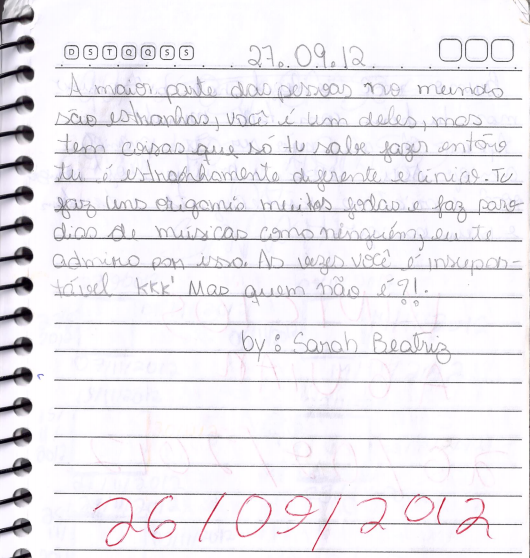 D S T Q Q S S 27.09.12
A maior parte das pessoas no mundo
são estranhas, você é um deles, mas
tem coisas que só tu sabe fazer então
tu é estranhamente diferente e único. Tu
faz uns origamis muitos fodas e faz paro
dias de músicas como ninguém, eu te
admiro por isso. As vezes você é insupor-
tável kkk' Mas quem não é?!.
by: Sarah Beatriz
26/09/2012